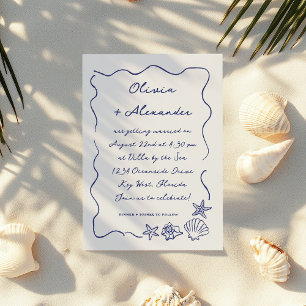 Olivia
+ Alexander
are getting married on
August 22nd at 4:30 pm
at Villa by the Sea
1234 Oceanside Drive
Key West, Florida
Join us to celebrate!
DINNER + DRINKS TO FOLLOW